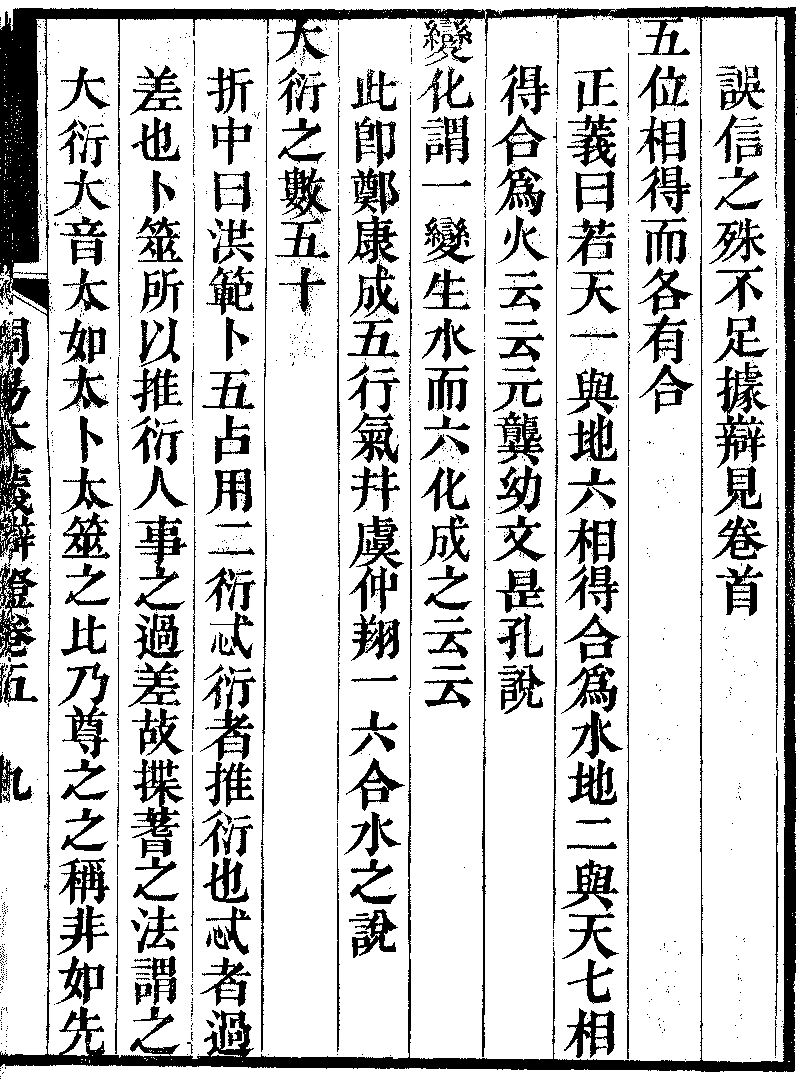 誤信之殊不足據辯見卷首
五位相得而各有合
正義曰若天一與地六相得合爲水地二與天七相
得合爲火云云元龔幼文是孔說
變化謂一變生水而六化成之云云
此卽鄭康成五行氣幷虞仲翔一六合水之說
大衍之數五十
折中曰洪範卜五占用二衍忒衍者推衍也忒者過
差也卜筮所以推衍人事之過差故揲蓍之法謂之
大衍大音太如太卜太筮之比乃尊之之稱非如先
周易本義辯證卷五 九